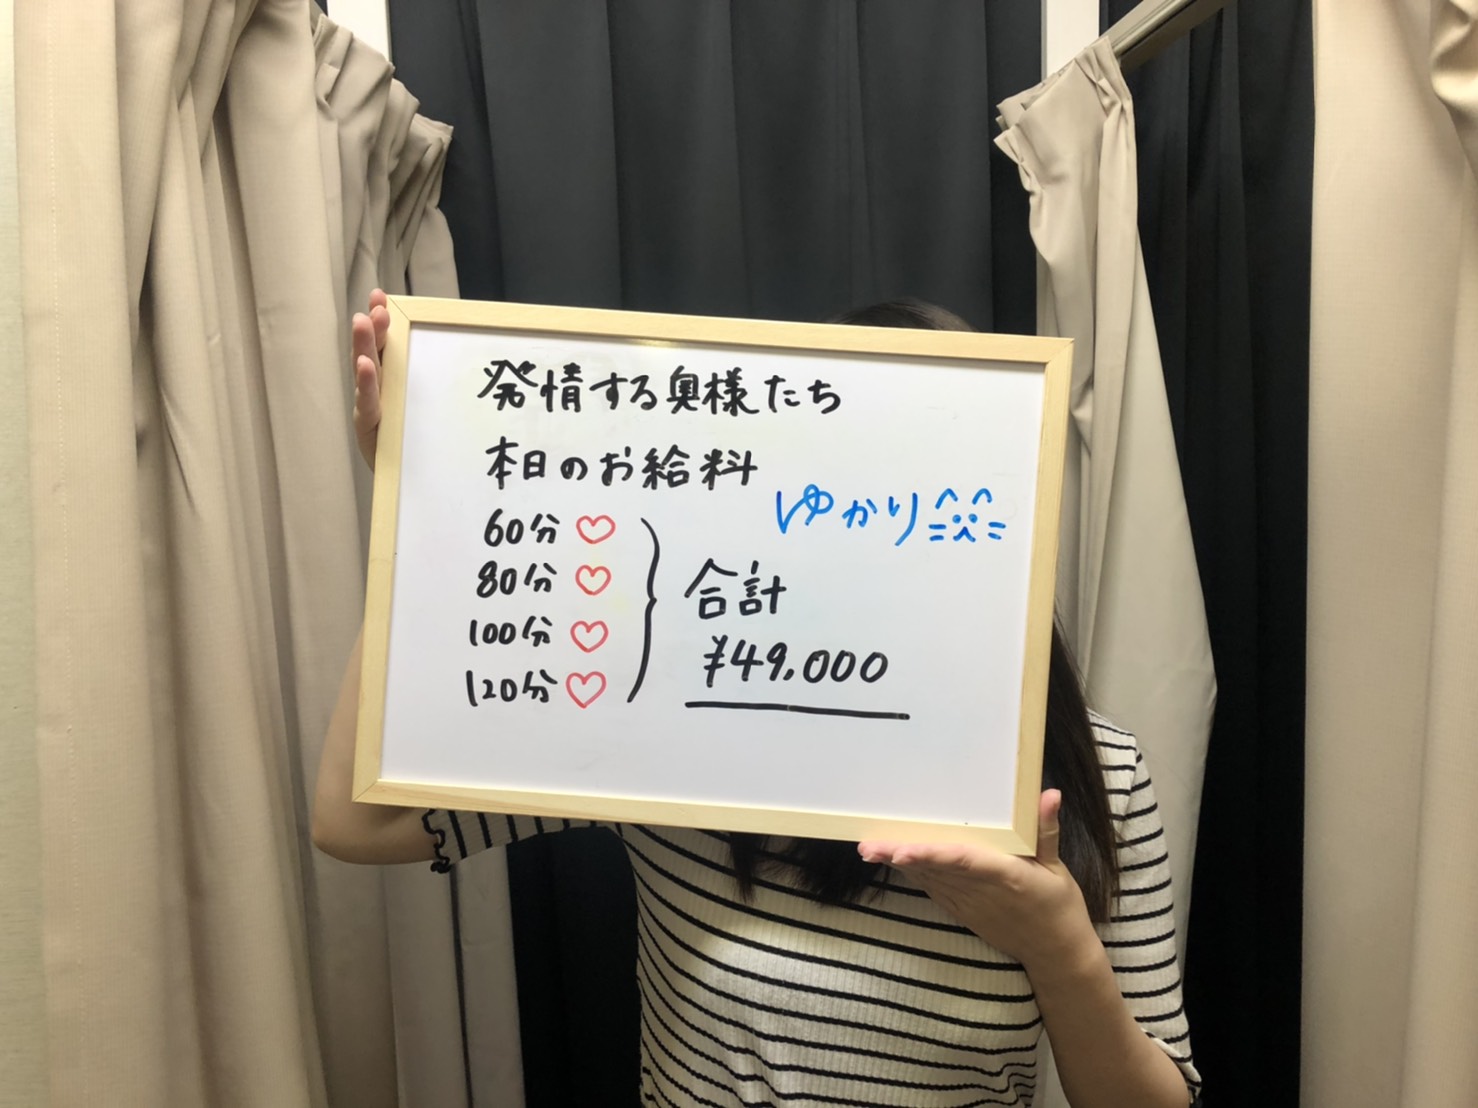 発情する奥様たち
本日のお給料
ゆかり
60分♡
80分♡
100分♡
120分♡
合計
¥49,000